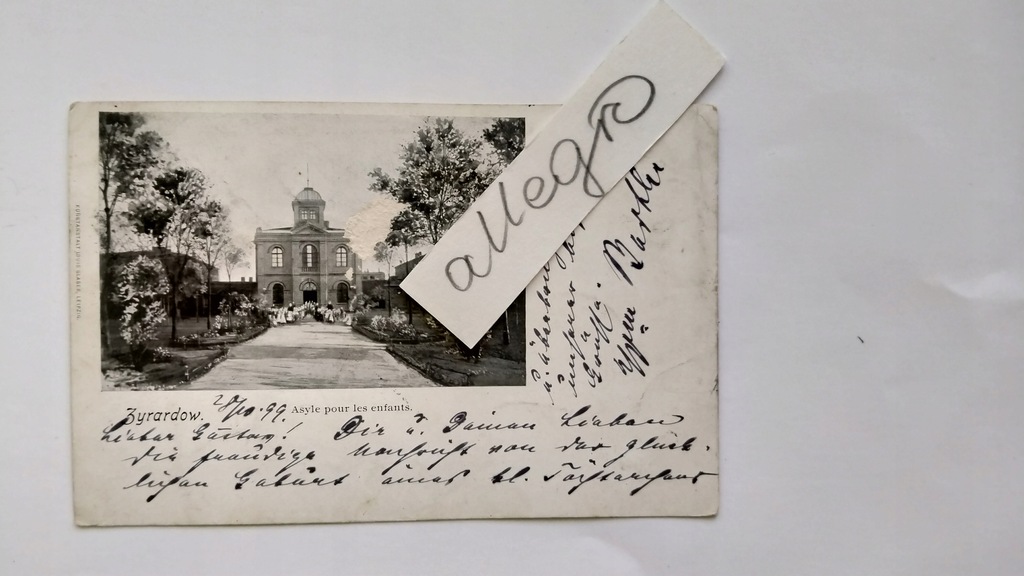 allegro
KUNSTANSTALT
LEIPZIG.
Zyrardow.
Asyle pour les enfants.
28/10.99
Lieber Gustav! Dir u. Deinen Lieben
die freudige Nachricht von der glück-
lichen Geburt eines kl. Töchterchens
u.
unserer
Grüsse.